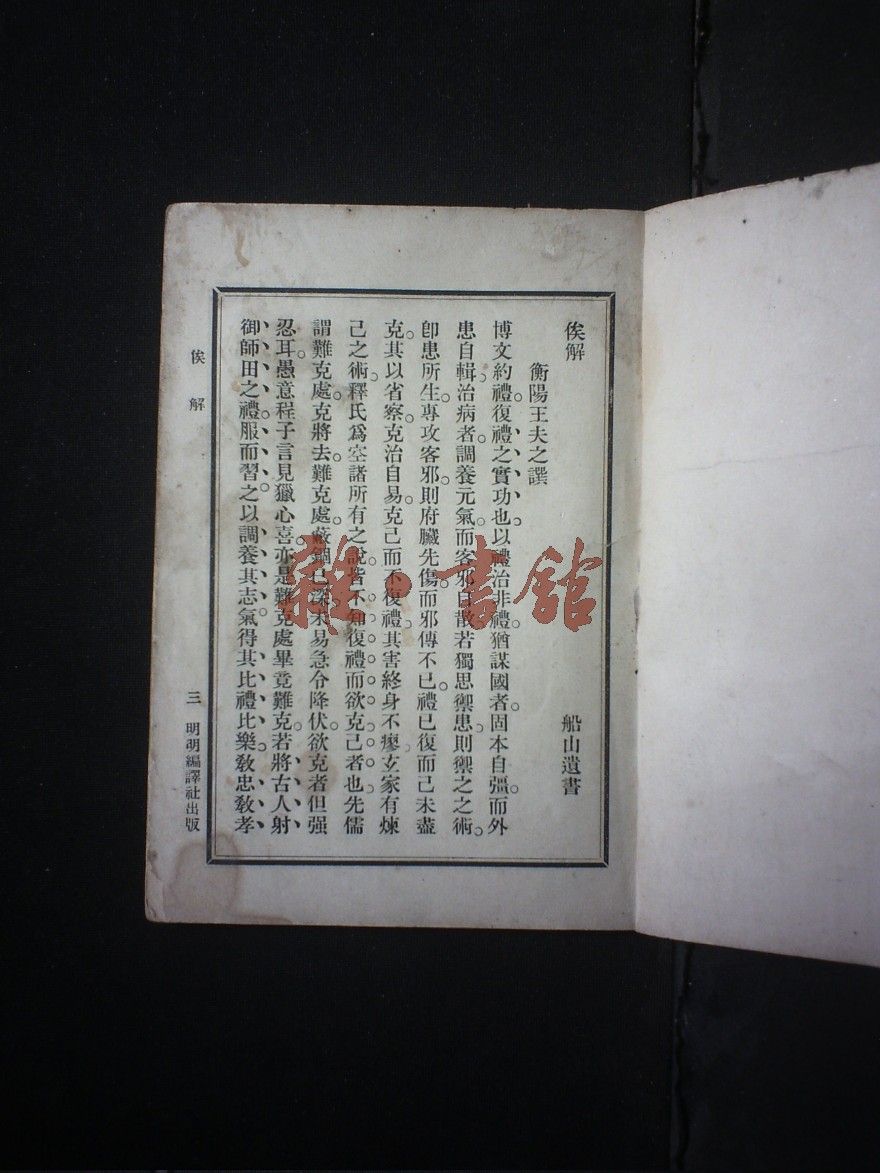 俟解 船山遺書
衡陽王夫之譔
博文約禮。復禮之實功也。以禮治非禮。猶謀國者。固本自彊。而外
患自輯。治病者。調養元氣。而客邪自散。若獨思禦患。則禦之之術。
卽患所生。專攻客邪。則府臟先傷。而邪傳不已。禮已復而己未盡
克。其以省察克治自易。克己而不復禮。其害終身不瘳。玄家有煉
己之術。釋氏爲空諸所有之說。皆不知復禮而欲克己者也。先儒
謂難克處克將去。難克處蔽錮已深。未易急令降伏。欲克者但强
忍耳。愚意程子言見獵心喜。亦是難克處。畢竟難克。若將古人射
御師田之禮。服而習之。以調養其志氣。得其比禮比樂。敎忠敎孝
俟解
三
明明編譯社出版
雜·書館